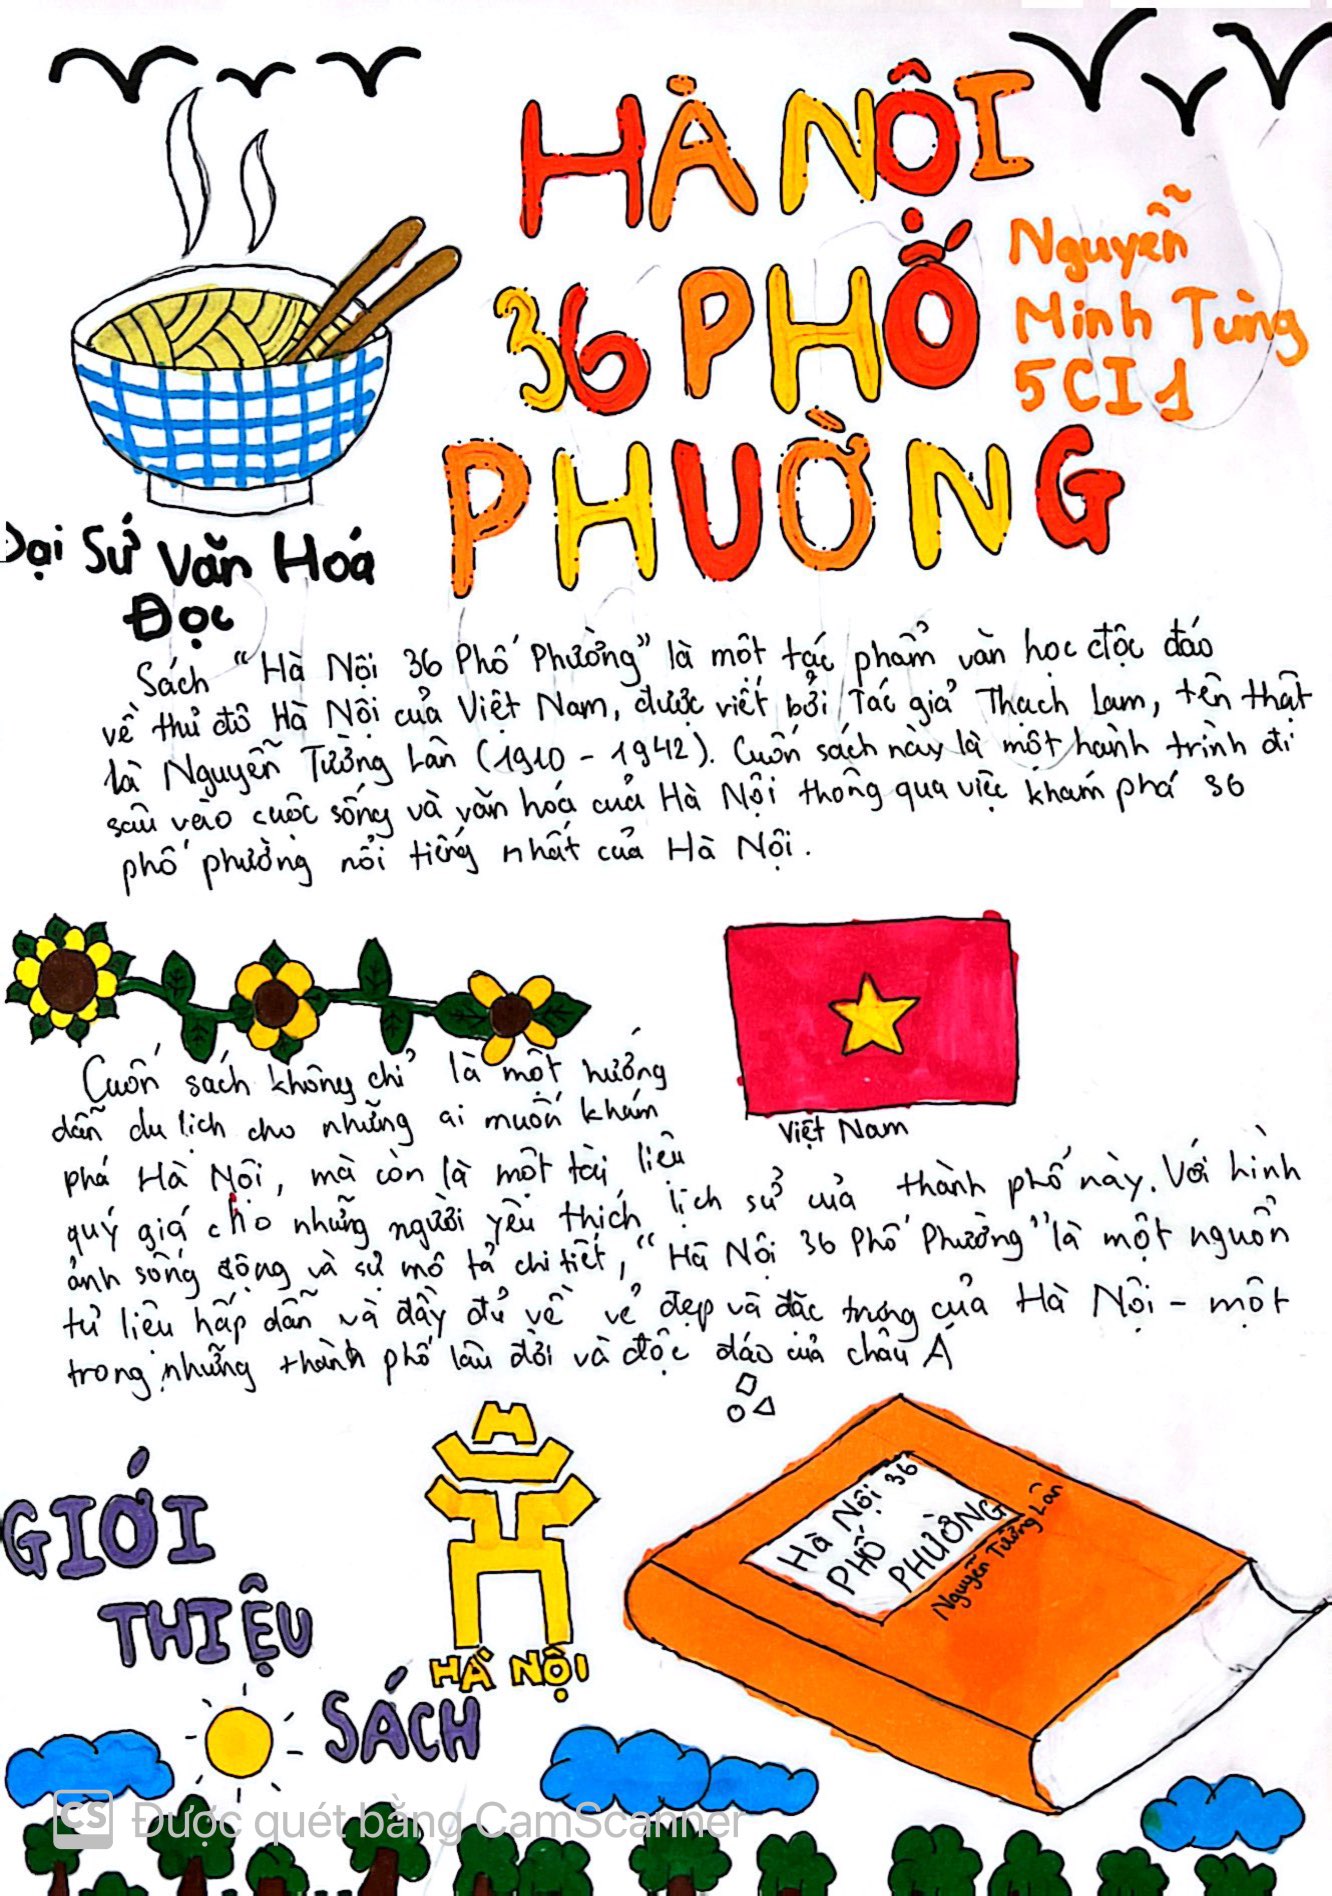 HÀ NỘI
36 PHỐ
PHƯỜNG
Nguyễn
Minh Tùng
5CI1
Đại Sứ Văn Hoá
Đọc
Sách "Hà Nội 36 Phố Phường" là một tác phẩm văn học độc đáo
về thủ đô Hà Nội của Việt Nam, được viết bởi Tác giả Thạch Lam, tên thật
là Nguyễn Tường Lân (1910 - 1942). Cuốn sách này là một hành trình đi
sâu vào cuộc sống và văn hoá của Hà Nội thông qua việc khám phá 36
phố phường nổi tiếng nhất của Hà Nội.
Việt Nam
Cuốn sách không chỉ là một hướng
dẫn du lịch cho những ai muốn khám
phá Hà Nội, mà còn là một tài liệu
quý giá cho những người yêu thích lịch sử của thành phố này. Với hình
ảnh sống động và sự mô tả chi tiết, "Hà Nội 36 Phố Phường" là một nguồn
tư liệu hấp dẫn và đầy đủ về vẻ đẹp và đặc trưng của Hà Nội - một
trong những thành phố lâu đời và độc đáo của châu Á
GIỚI
THIỆU
SÁCH
HÀ NỘI
Hà Nội 36
PHỐ
PHƯỜNG
Nguyễn Tường Lân
CS Được quét bằng CamScanner